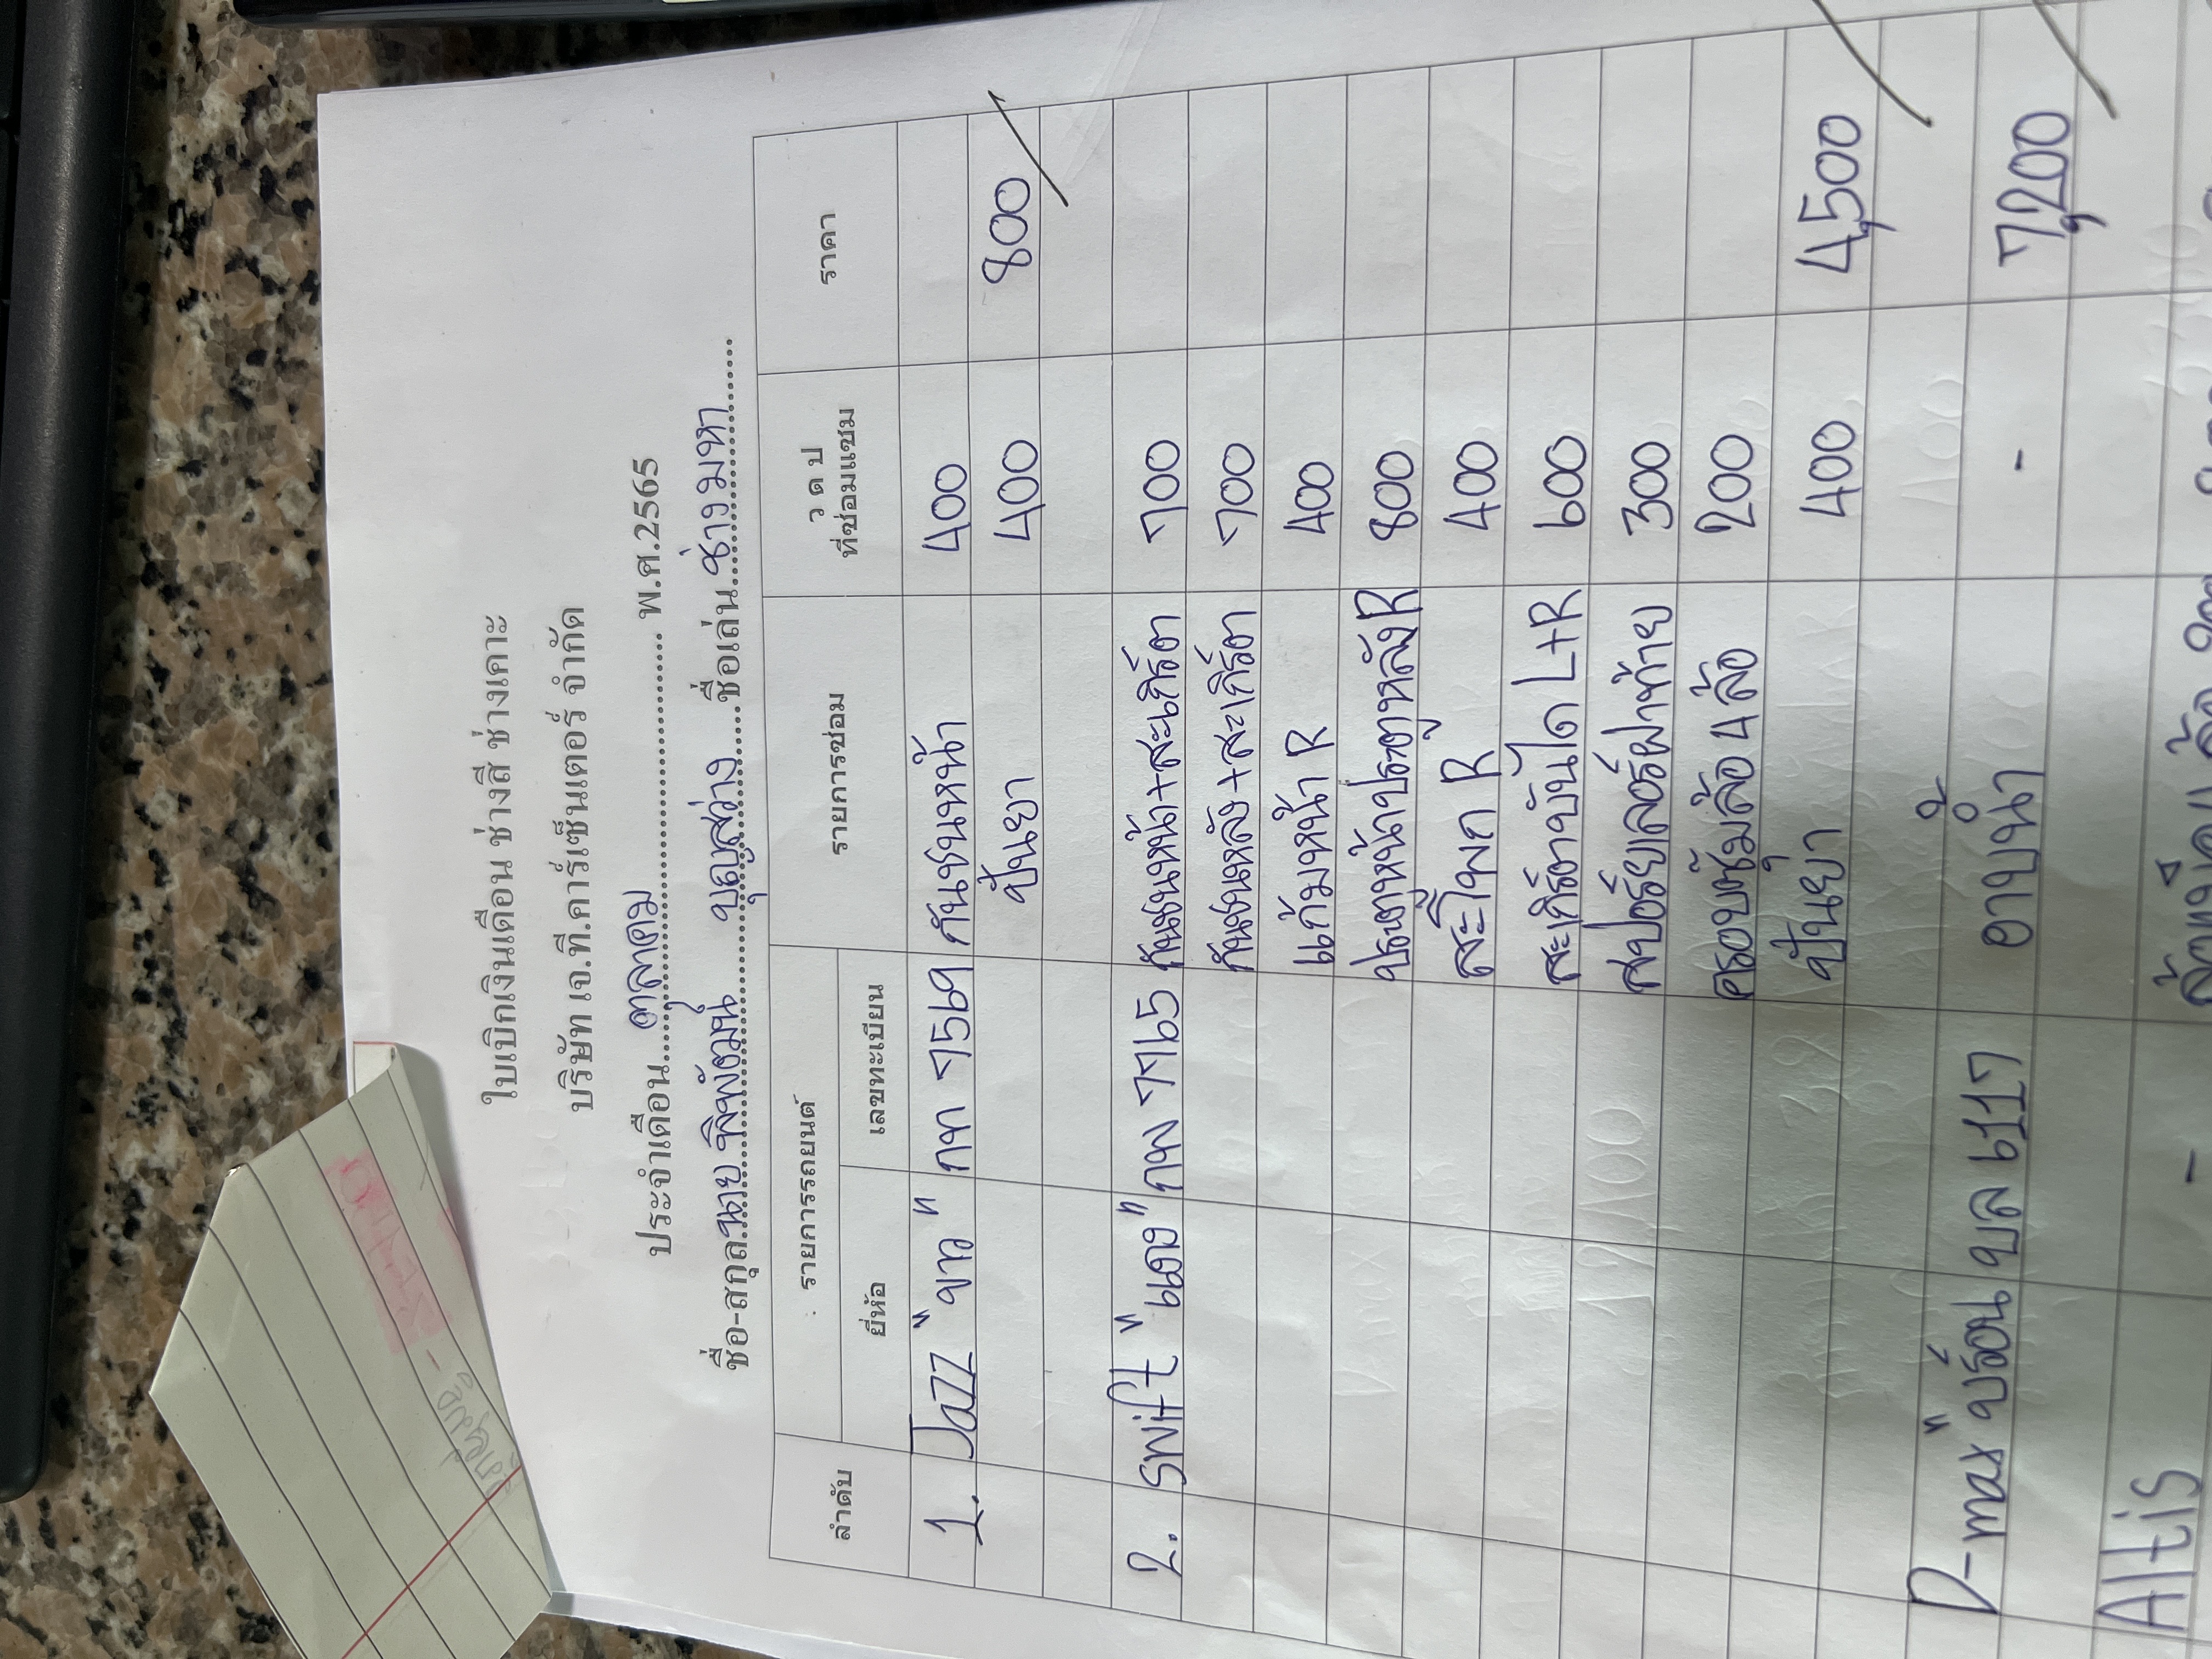 ใบเบิกเงินเดือน ช่างสี ช่างเคาะ
บริษัท เจ.ที.คาร์เซ็นเตอร์ จำกัด
ประจำเดือน ตุลาคม พ.ศ.2565
ชื่อ-สกุล นาย พิพัฒน์ บุญสว่าง ชื่อเล่น ช่างมหา
ลำดับ รายการรถยนต์ รายการซ่อม ว ด ป ที่ซ่อมแซม ราคา
ยี่ห้อ เลขทะเบียน
1. Jazz "ขาว" กท 7569 กันชนหน้า 400
ปั่นยา 400 800
2. swift "แดง" กพ 7765 กันชนหน้า+สะเกิร์ตา 700
กันชนหลัง+สะเกิร์ตา 700
แก้มหน้า R 400
ประตูหน้าประตูหลัง R 800
สะโพก R 400
สะเกิร์ตาบันได L+R 600
สปอร์ยเลอร์ฝาท้าย 300
ครอบซุ้มล้อ 4 ล้อ 200
ปั่นยา 400 4,500
D-max "บร์อน" บล 6117 อาบน้ำ - 7,200
Altis -